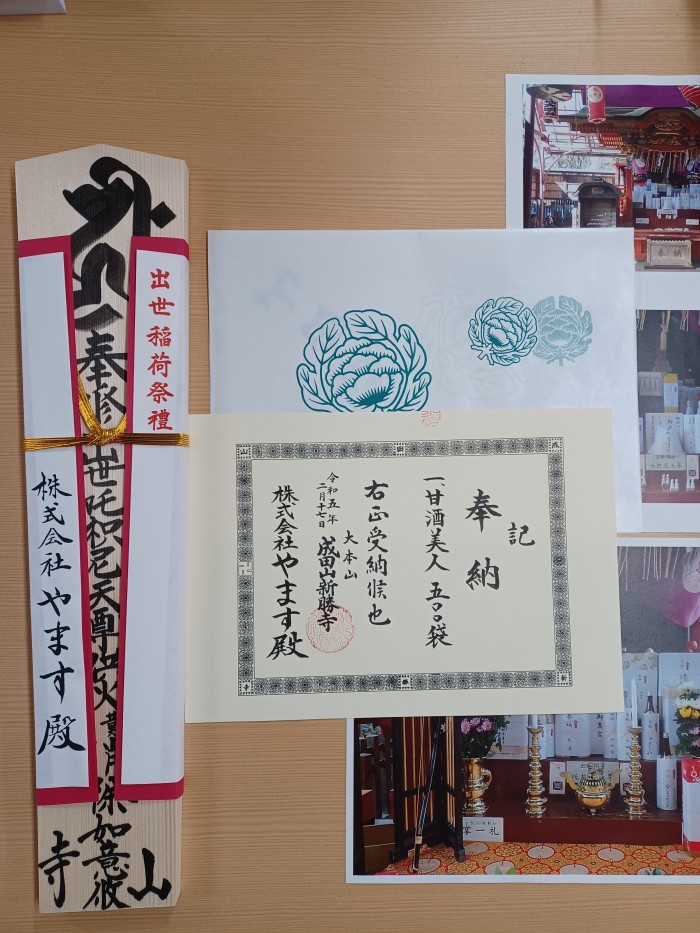 出世稲荷祭禮
奉修出世吒枳尼天尊
如意
山
寺
株式会社やます殿
記
奉納
一、甘酒美人 五〇〇袋
右正受納候也
大本山
成田山新勝寺
令和五年
二月十七日
株式会社やます殿
成
田
山
新
勝
寺
奉納
合掌一礼